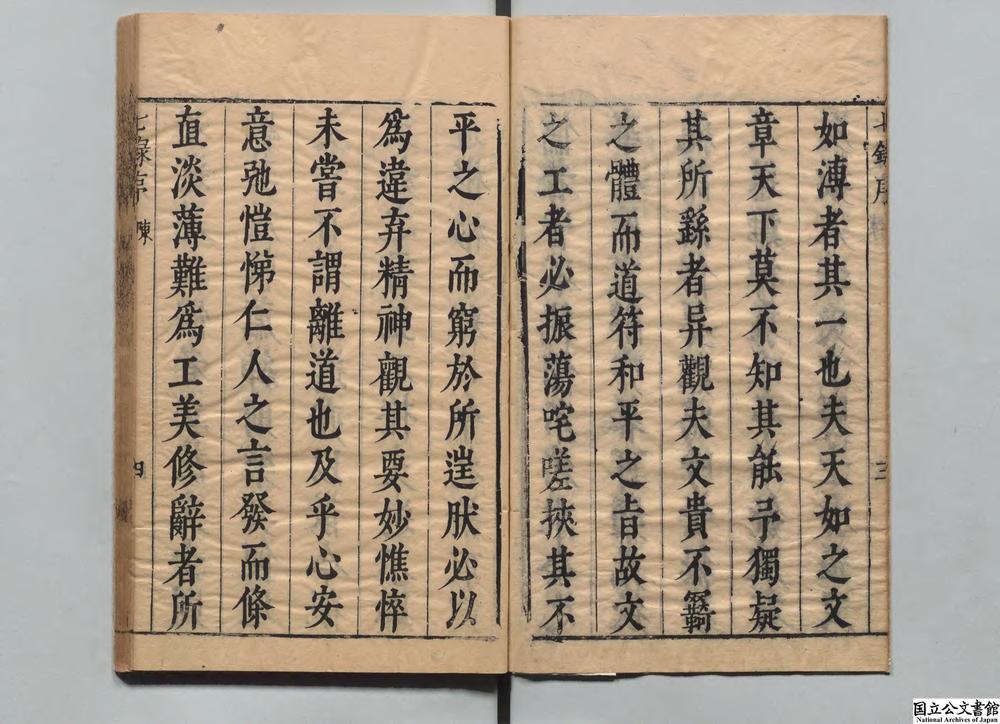 七録序
三
如溥者其一也夫天如之文
章天下莫不知其能予獨疑
其所繇者异觀夫文貴不羈
之體而道符和平之旨故文
之工者必振蕩咤嗟挾其不
平之心而窮於所逞肰必以
爲違弃精神觀其要妙憔悴
未嘗不謂離道也及乎心安
意弛愷悌仁人之言發而條
直淡薄難爲工美修辭者所
七録序 陳
四
国立公文書館
National Archives of Japan